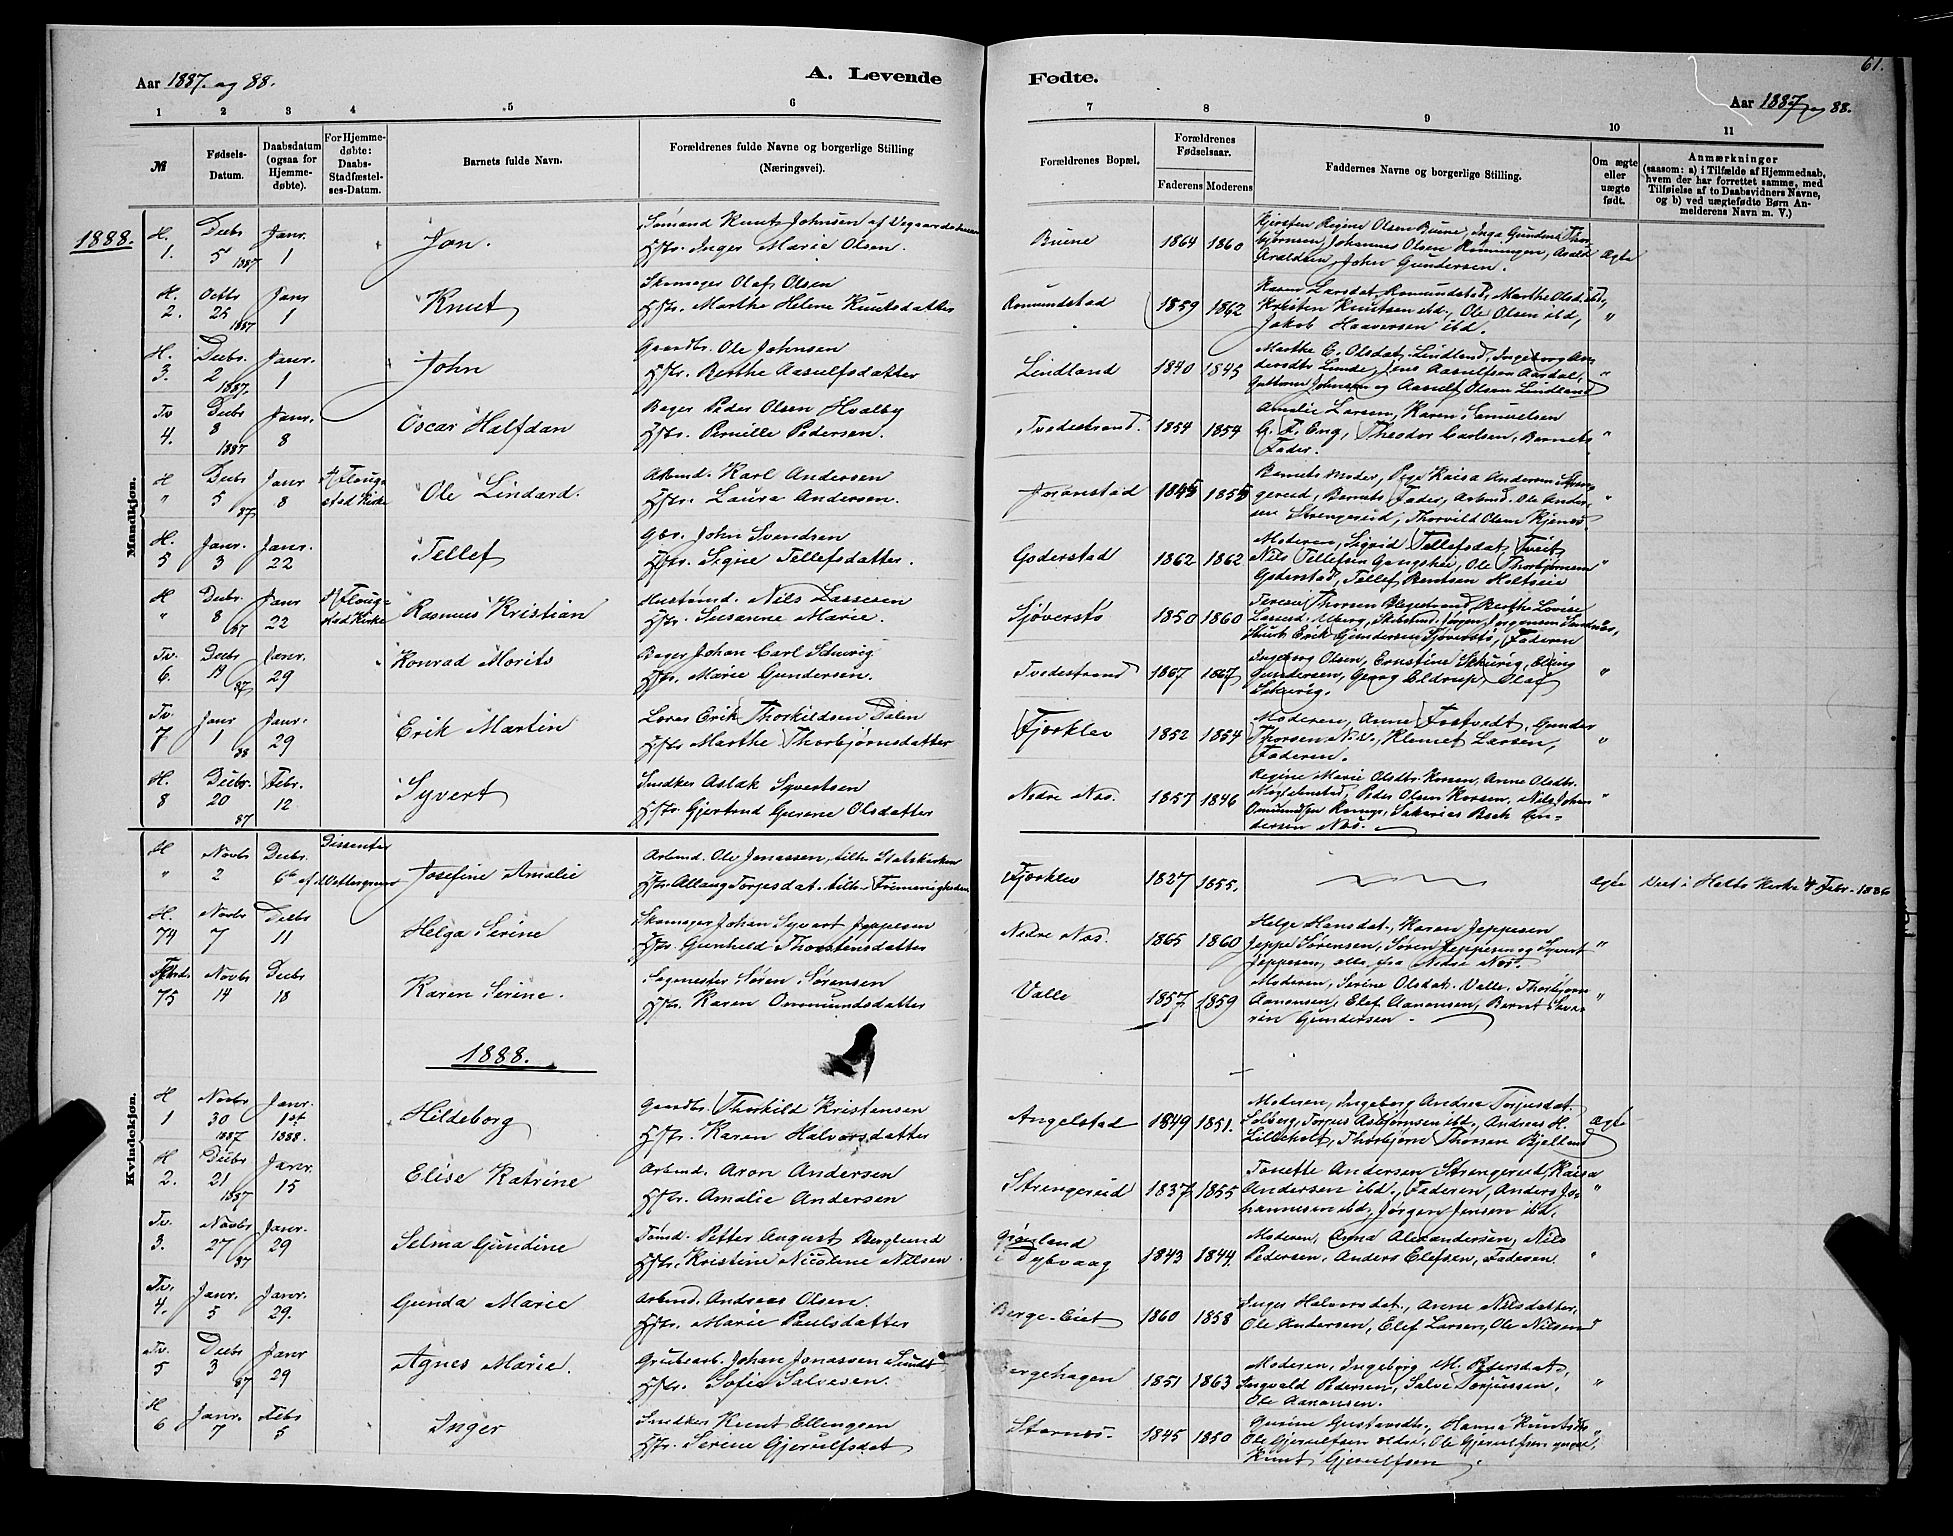 61.
Aar 1887. og 88.
A. Levende
Fødte.
Aar 1887 og 88.
1 2 3 4 5 6 7 8 9 10 11
№
Fødsels-Datum.
Daabsdatum (ogsaa for Hjemmedøbte).
For Hjemmedøbte: Daabs-Stadfæstelses-Datum.
Barnets fulde Navn.
Forældrenes fulde Navne og borgerlige Stilling (Næringsvei).
Forældrenes Bopæl.
Forældrenes Fødselsaar.
Faderens Moderens
Faddernes Navne og borgerlige Stilling.
Om ægte eller uægte født.
Anmærkninger
(saasom: a) i Tilfælde af Hjemmedaab, hvem der har forrettet samme, med Tilføielse af to Daabsvidners Navne, og b) ved uægtefødte Børn Anmelderens Navn m. V.)
Mandkjøn.
1888.
H. 1. Decbr 5 1887 Janr. 1 Jon. Sømand Knut Johnsen af
Hstr. Inger Marie Olsen. Buene 1864 1860 Kjersten Regine Olsen Buene, Inga Gundersd Thorbjørnsen, Johannes Olsen Rønningen, Arald Araldsen, John Gundersen. Ægte
H. 2. Octbr 25 1887 Janr 1 Knut Skomager Olaf Olsen
Hstr. Marthe Helene Knutsdatter Romundstad 1859 1862 Karen Larsdat. Romundstad, Marthe Olsd. ibd, Kristen Knutsen ibd., Ole Olsen ibd, Jakob Haaversen ibd. "
H. 3. Decbr. 2 1887. Janr. 1 John Gaardbr. Ole Johnsen
Hstr. Berthe Aasulfsdatter Lindland 1840 1845 Marthe C. Olsdat. Lindland, Ingeborg Andersdtr Lunde, Jens Aasulfsen Aasdal, Guttorm Johnsen og Aasulf Olsen Lindland "
Tv 4. Decbr 8 1887 Janr. 8 Oscar Halfdan Bager Peder Olsen Hvalby
Hstr. Pernille Pedersen. Tvedestrand. 1854 1854 Amalie Larsen, Karen Samuelsen G. T. Eng, Theodor Carlsen, Barnets Fader. "
H " Decbr 5 87 Janr 8 Flougstad Kirke Ole Lindard. Arbmd. Karl Andersen
Hstr. Laura Andersen. Joranstad 1845 1855 Barnets Moder, Pige Kaisa Andersen Strengereid, Barnets Fader, Arbmd. Ole Andersen Strengereid, Thorvild Olsen Kjenes. "
H. 5 Janr. 3 Janr. 22 Tellef Gbr. John Svendsen
Hstr. Signe Tellefsdatter. Goderstad 1862 1862 Moderen, Sigrid Tellefsdat. Tveit, Nils Tellefsen Gangshei, Ole Thorbjørnsen Goderstad, Tellef Bentsen Holtseie "
H " Decbr 8 87 Janr 22 Flougstad Kirke Rasmus Kristian Hustømd. Nils Lassesen
Hstr. Susanne Marie. Sjøverstø 1850 1860 Terese Thorsen Berthe Lovise Jørgen Jørgensen Sandnes, Erik Gundersen Sjøverstø, Faderen
Tv. 6. Decbr 14 87 Janr. 29 Konrad Morits Bager Johan Carl Schurig
Hstr. Marie Gundersen. Tvedestrand 1867 1867 Ingeborg Olsen, Ernstine Schurig, Elling Gundersen, Georg Eldrup, Olaf Schurig. "
Tv. 7 Janr 1 88 Janr. 29 Erik Martin Lods Erik Thorkildsen Dalen
Hstr Marthe Thorbjørnsdatter Fjorklev 1852 1854 Moderen, Anne Fostvedt, Gunder Thorsen Klemet Larsen, Faderen. "
H. 8 Decbr. 20 87 Febr. 12 Syvert Snedker Aslak Syvertsen
Hstr. Gjertrud Gurene Olsdatter Nedre Nes. 1857 1846 Regine Marie Olsdtr. Korsen, Anne Olsdtr. Peder Olsen Korsen, Nils Johan Sakarias Bech Gundersen Nes. "
Kvindekjøn.
H " Novbr 2 Decbr. 6te Dissenter Josefine Amalie Arbmd. Ole Jonassen, tilh. Statskirken
Hstr. Allaug Torjesdat. tilh. Frimenigheden Fjorklev 1827 1855. Ægte Viet i Holts Kirke 4 Febr. 1886
H. 74 Novbr 7 Decbr 11 Helga Serine Skomager Johan Syvert Jeppesen
Hstr. Gunhild Thorstensdatter Nedre Nes. 1865 1860 Helge Hansdat., Karen Jeppesen Jeppe Sørensen, Søren Jeppesen og Syvert Jeppesen, alle fra Nedre Nes. "
75 Novbr 14 Decbr 18 Karen Serine. Sagmester Søren Sørensen
Hstr. Karen Ommundsdatter Valle 1857 1859 Moderen, Serine Olsdat. Valle, Thorbjørn Aanonsen, Elef Aanonsen, Bernt Severin Gundersen. "
1888.
H 1 Novbr 30 1887 Janr. 1ste 1888. Hildeborg Gaardbr. Thorkild Kristensen
Hstr. Karen Halvorsdatter Angelstad 1849 1851. Moderen, Ingeborg Andrea Torjusdat. Solberg, Torjus Asbjørnsen ibd., Andreas H. Lilleholt, Thorbjørn Thorsen Bjelland Ægte
H 2. Decbr 21 1887 Janr. 15 Elise Katrine Arbmd. Aron Andersen
Hstr. Amalie Andersen Strengereid 1837 1855 Tonette Andersen Strengereid, Kaisa Andersen ibd., Faderen, Anders Johannesen ibd, Jørgen Jensen ibd. "
Tv. 3. Novbr 27 87 Janr. 29 Selma Gundine Tømd. Petter August Berglund
Hstr. Kristine Nicoline Nilsen. Grønland i Dybvaag 1843 1844. Moderen, Anna Alexandersen, Nils Pedersen, Anders Elefsen, Faderen "
Tv. 4. Janr. 5 Janr. 29. Gunda Marie Arbmd. Andreas Olsen.
Hstr. Marie Paulsdatter Berge-Eiet 1860 1858 Inger Halvorsdat., Anne Nilsdatter, Ole Andersen, Elef Larsen, Ole Nilsen "
Tv. 5 Decbr 3 87 Janr 29 Agnes Marie. Grubearb. Johan Jonassen Sunde
Hstr. Sofie Salvesen. Bergehagen 1851 1863 Moderen, Ingeborg M. Peersdat, Ingvald Pedersen, Salve Torjussen, Ole Aanonsen. "
H 6 Janr. 7 Febr 5 Inger Snedker Knut Ellingsen
Hstr. Serine Gjerulfsdat Stornes. 1845 1850 Gurine Gustavsdtr., Hanna Knutsdtr Ole Gjerulfsen ældre, Ole Gjerulfsen yngre, Knut Gjerulfsen. "